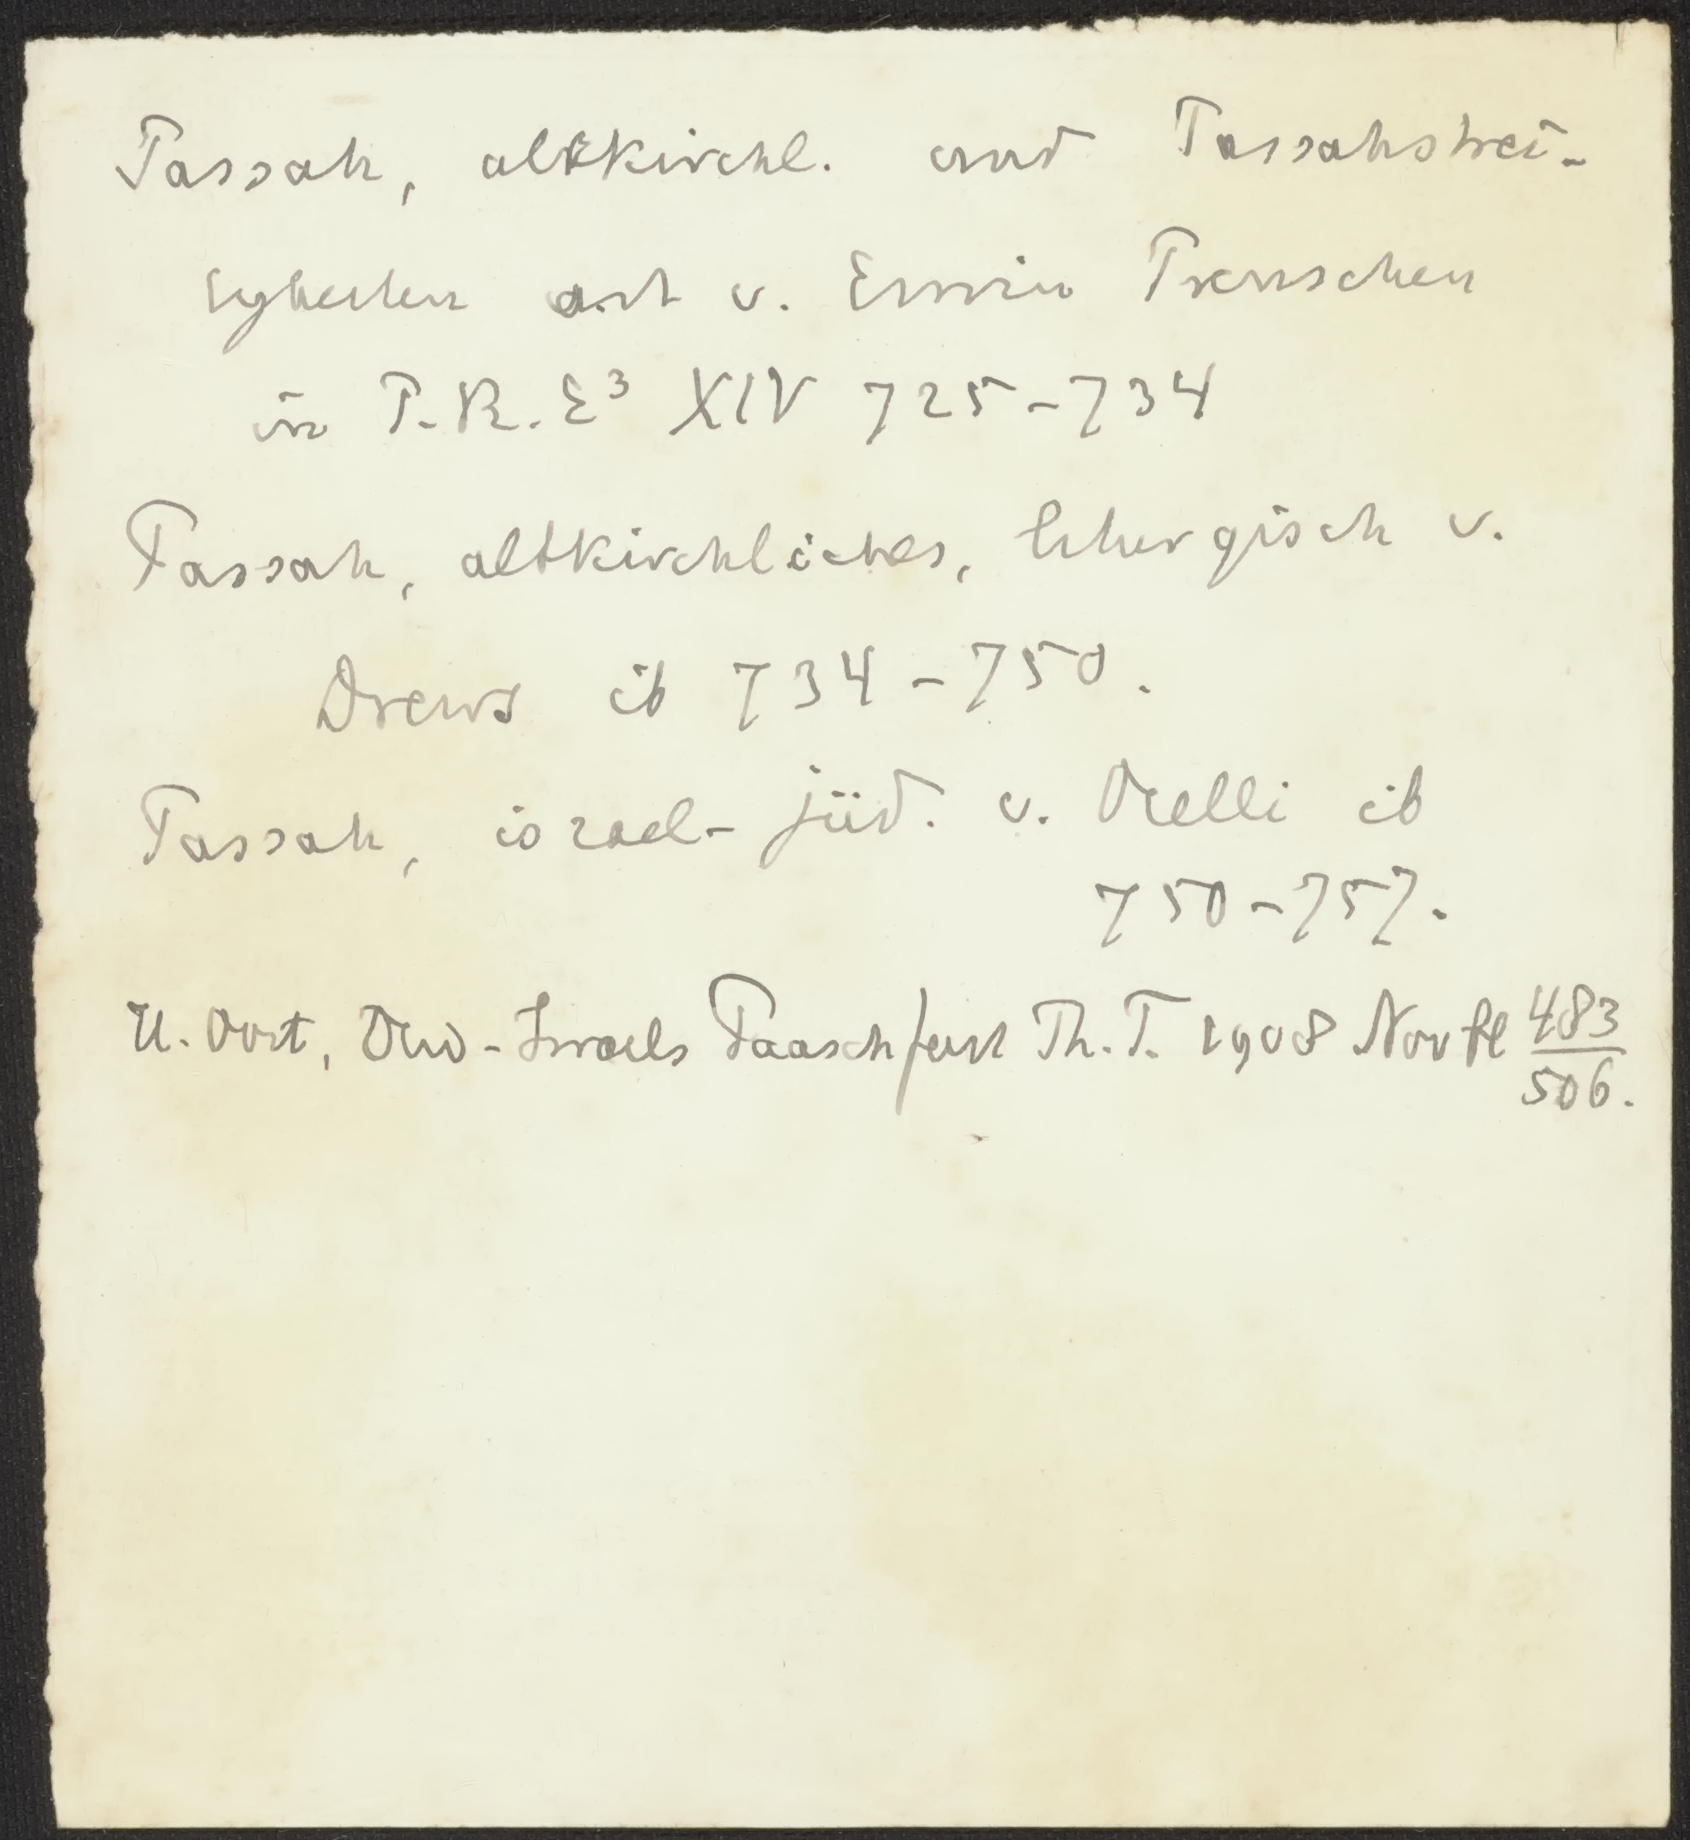 Passah, altkirchl. und Passahstrei-
tigkeiten art v. Erwin Preuschen
in P.R.E³ XIV 725-734
Passah, altkirchliches, liturgisch v.
Drews ib 734-750.
Passah, israel-jüd. v. Orelli ib
750-757.
H. Oort, Oud-Israels Paaschfeest Th.T. 1908 Nov 483
506.